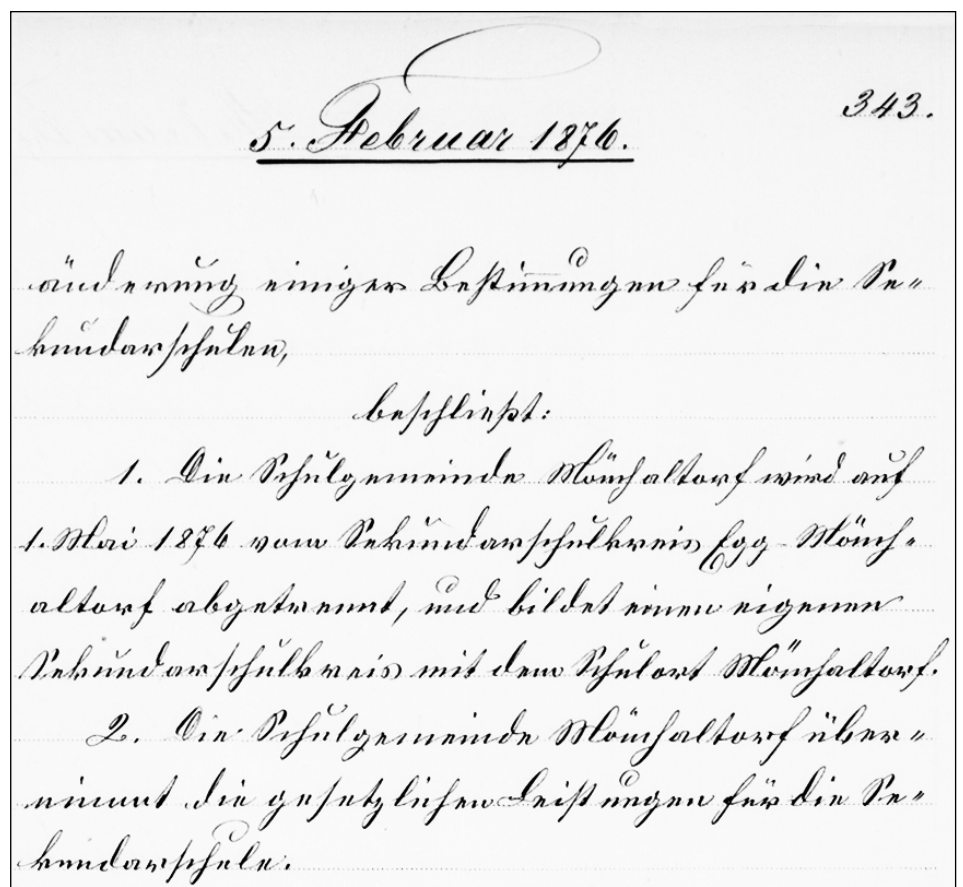 343.
5. Februar 1876.
änderung einiger Bestim̅ungen für die Se=
kundarschulen,
beschließt:
1. Die Schulgemeinde Mönchaltorf wird auf
1. Mai 1876 vom Sekundarschulkreis Egg-Mönch=
altorf abgetrennt, und bildet einen eigenen
Sekundarschulkreis mit dem Schulort Mönchaltorf.
2. Die Schulgemeinde Mönchaltorf über=
nimmt die gesetzlichen Leistungen für die Se=
kundarschule.